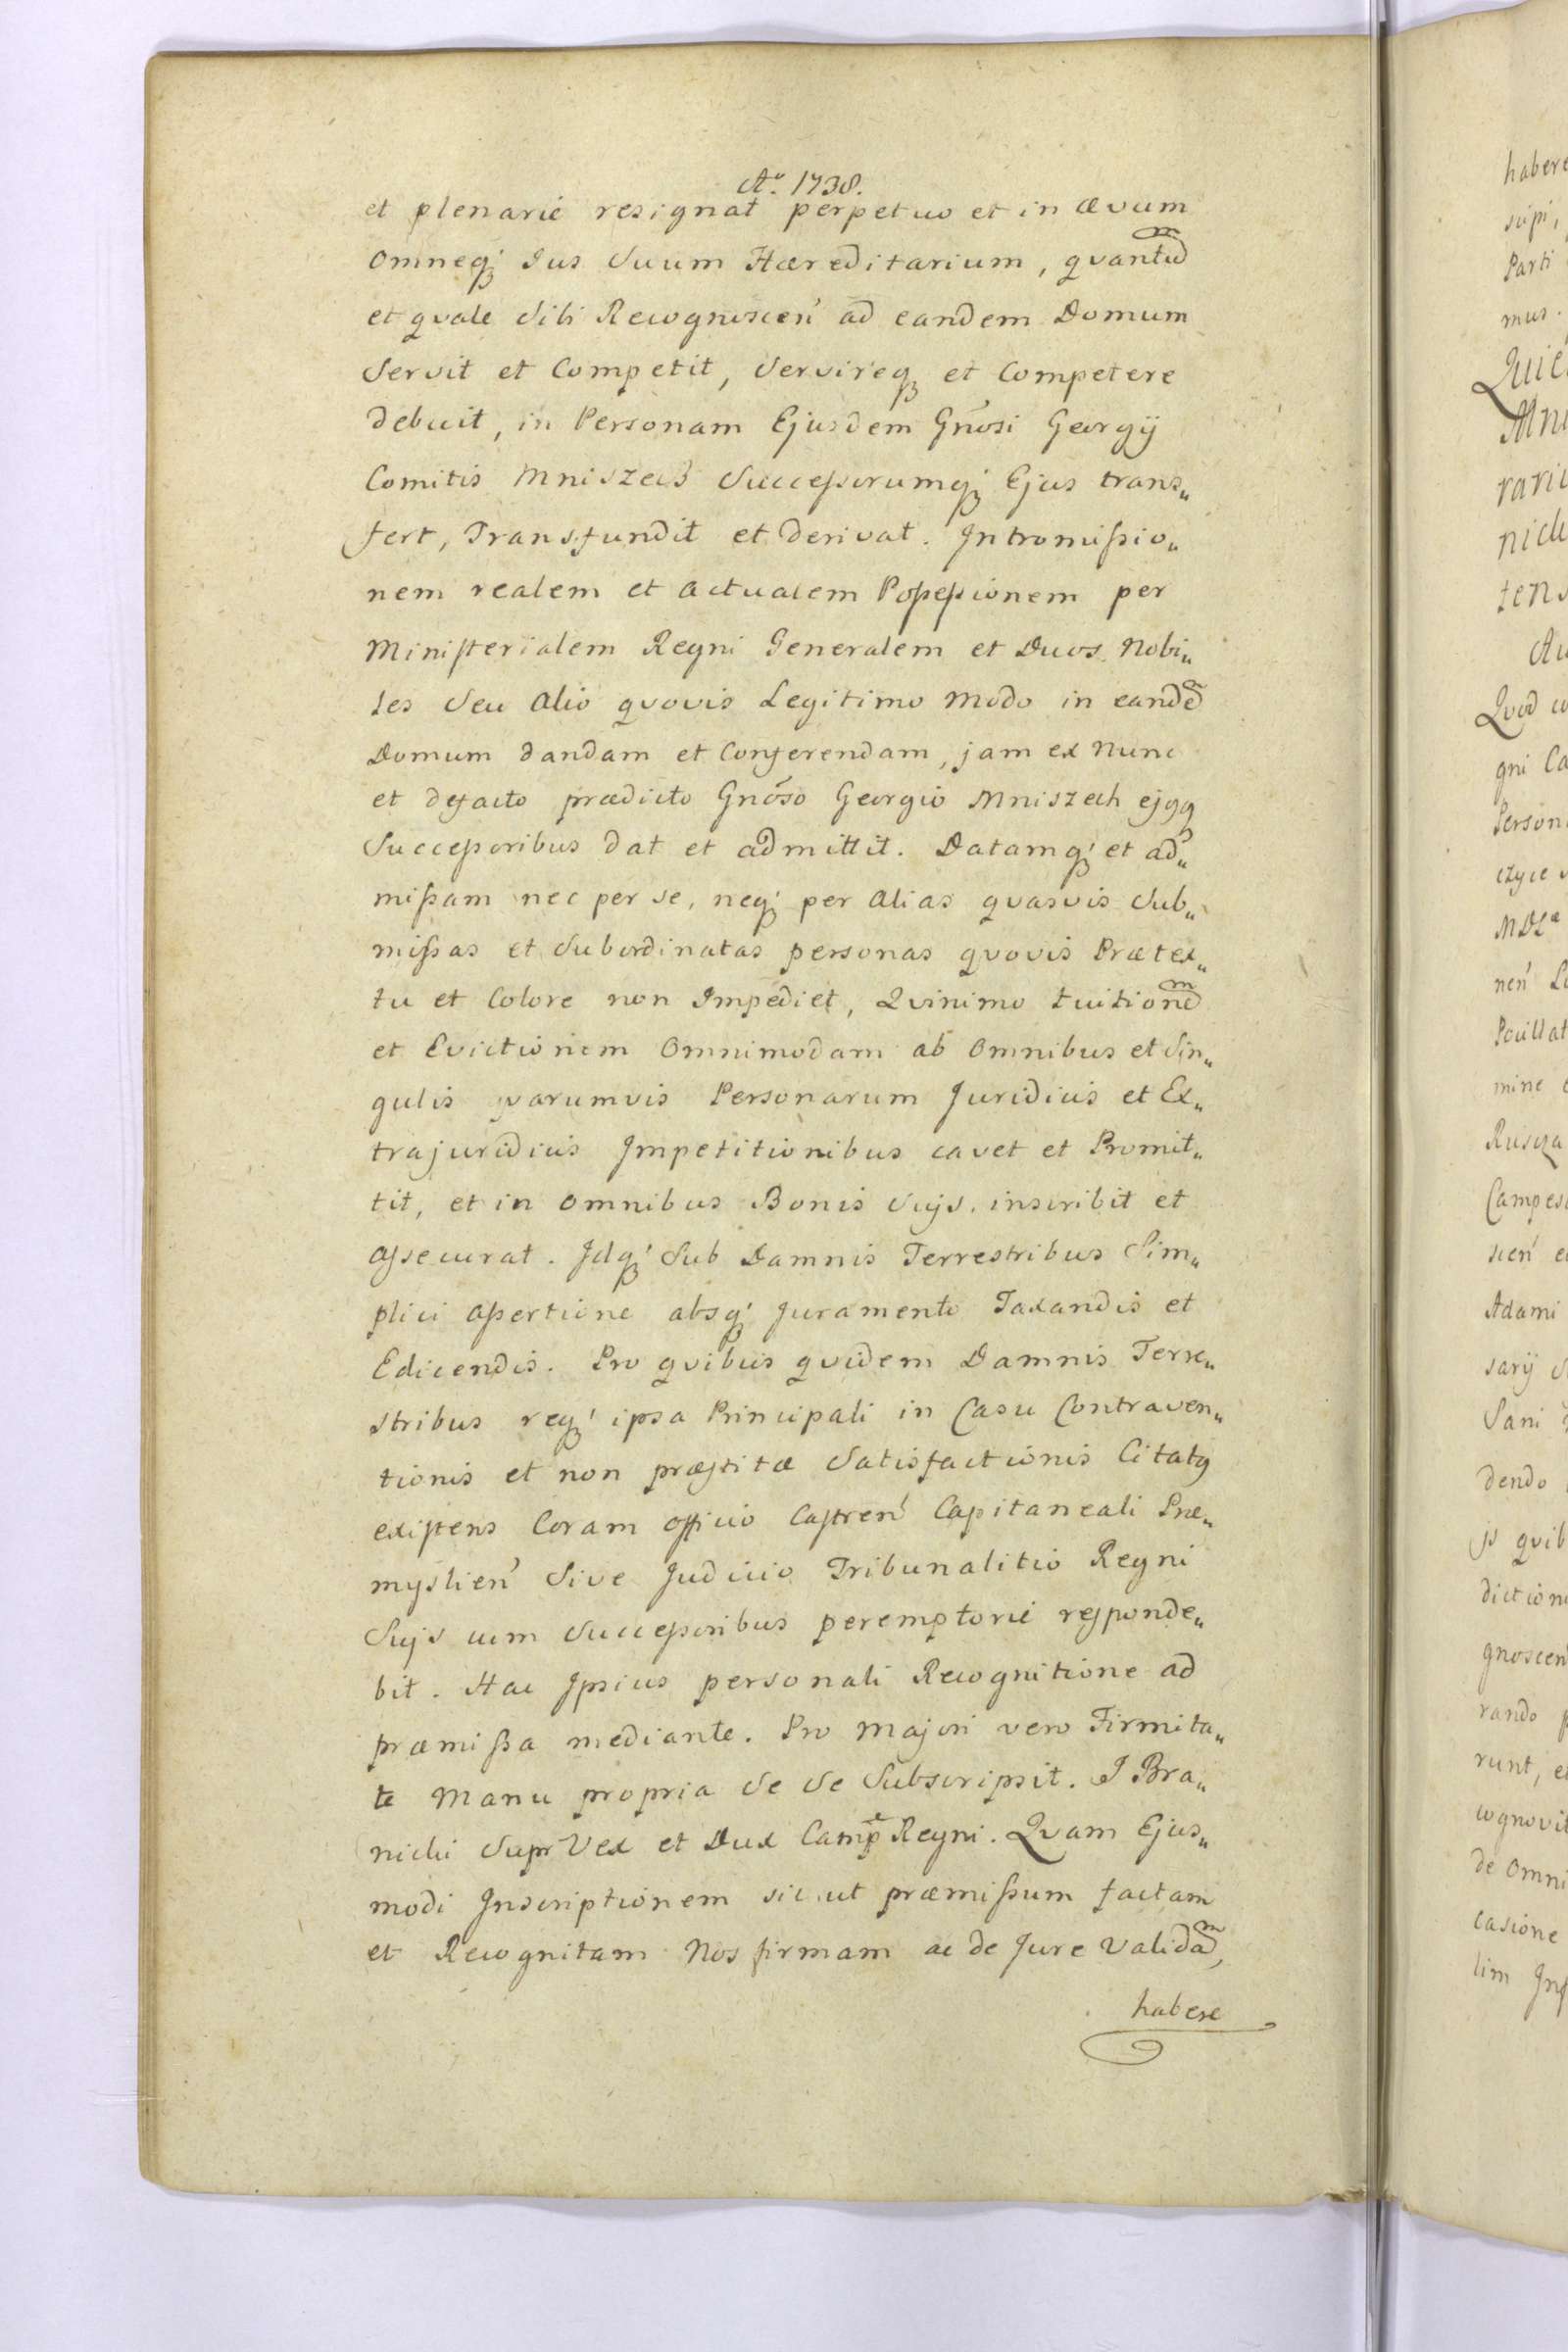 Aº. 1738.
et plenarié resignat perpetuo et in ævum
omneq́ Jus Suum Hæreditarium, qvantũ
et qvale Sibi Recognoscen ́ ad eandem Domum
Servit et Competit, Servireq et Competere
debuit, in Personam Ejusdem Gñosi Georgij
Comitis Mniszech Successorumq́ Ejus trans„
fert, Transfundit et derivat. Intromissio„
nem realem et actualem Possessionem per
Ministerialem Regni Generalem et Duos Nobi„
les Seu alio qvovis Legitimo modo in eandẽ
Domum dandam et Conferendam, jam ex Nunc
et defacto prædicto Gnõso Georgio Mniszech ejqq
Successoribus dat et admittit. Datamq́ et ad„
missam nec per se, neq́ per alias qvasvis Sub„
missas et Subordinatas personas qvovis Prætex„
tu et Colore non Impediet, Qvinimo tuitionẽ
et Evictionem Omnimodam ab Omnibus et Sin„
gulis qvarumvis Personarum Juridicis et Ex„
trajuridicis Impetitionibus cavet et Promit„
tit, et in omnibus Bonis Suijs. inscribit et
assecurat. Idq́ Sub Damnis Terrestribus Sim„
plici assertione absq́ Juramento Taxandis et
Edicendis. Pro qvibus qvidem Damnis Terre„
stribus req́ ipsa Principali in Casu Contraven„
tionis et non præstitæ Satisfactionis Citatq
existens Coram officio Castren ́ Capitaneali Præ„
myslien ́ Sive Judicio Tribunalitio Regni
Suijs cum Successoribus peremptorié responde„
bit. Hac Ipsius personali Recognitione ad
præmissa mediante. Pro majori vero Firmita„
te Manu propria Se Se Subscripsit. J Bra„
nicki Supr Vex et Dux Campͤ Regni. Qvam Ejus„
modi Inscriptionem sicut præmissum factam
et Recognitam Nos firmam ac de Jure Validã,
habere